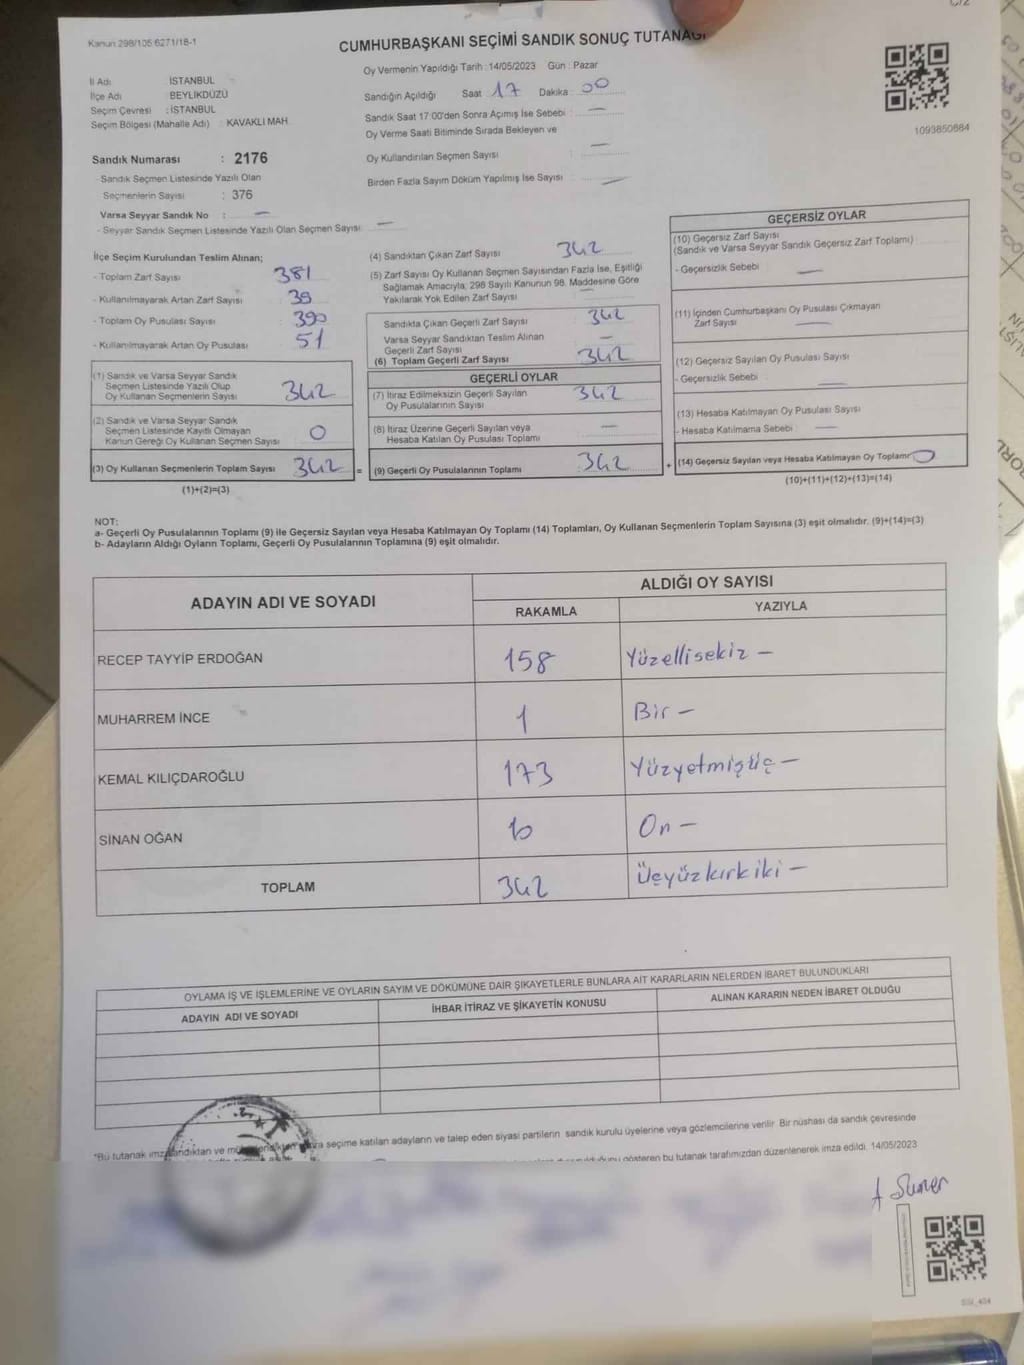 Kanun 298/105 6271/18-1
CUMHURBAŞKANI SEÇİMİ SANDIK SONUÇ TUTANAĞI
Oy Vermenin Yapıldığı Tarih : 14/05/2023 Gün : Pazar
İl Adı İSTANBUL
İlçe Adı BEYLİKDÜZÜ
Seçim Çevresi : İSTANBUL
Seçim Bölgesi (Mahalle Adı) : KAVAKLI MAH.
Sandık Numarası : 2176
- Sandık Seçmen Listesinde Yazılı Olan
Seçmenlerin Sayısı : 376
Varsa Seyyar Sandık No : —
- Seyyar Sandık Seçmen Listesinde Yazılı Olan Seçmen Sayısı —
Sandığın Açıldığı Saat 17 Dakika 00
Sandık Saat 17:00'den Sonra Açımış İse Sebebi : —
Oy Verme Saati Bitiminde Sırada Bekleyen ve
Oy Kullandırılan Seçmen Sayısı : —
Birden Fazla Sayım Döküm Yapılmış İse Sayısı : —
1093850884
İlçe Seçim Kurulundan Teslim Alınan;
- Toplam Zarf Sayısı 381
- Kullanılmayarak Artan Zarf Sayısı 39
- Toplam Oy Pusulası Sayısı 390
- Kullanılmayarak Artan Oy Pusulası 51
(1) Sandık ve Varsa Seyyar Sandık
Seçmen Listesinde Yazılı Olup
Oy Kullanan Seçmenlerin Sayısı 342
(2) Sandık ve Varsa Seyyar Sandık
Seçmen Listesinde Kayıtlı Olmayan
Kanun Gereği Oy Kullanan Seçmen Sayısı 0
(3) Oy Kullanan Seçmenlerin Toplam Sayısı 342 =
(1)+(2)=(3)
(4) Sandıktan Çıkan Zarf Sayısı 342
(5) Zarf Sayısı Oy Kullanan Seçmen Sayısından Fazla İse, Eşitliği
Sağlamak Amacıyla, 298 Sayılı Kanunun 98. Maddesine Göre
Yakılarak Yok Edilen Zarf Sayısı —
Sandıkta Çıkan Geçerli Zarf Sayısı 342
Varsa Seyyar Sandıktan Teslim Alınan
Geçerli Zarf Sayısı —
(6) Toplam Geçerli Zarf Sayısı 342
GEÇERLİ OYLAR
(7) İtiraz Edilmeksizin Geçerli Sayılan
Oy Pusulalarının Sayısı 342
(8) İtiraz Üzerine Geçerli Sayılan veya
Hesaba Katılan Oy Pusulası Toplamı —
(9) Geçerli Oy Pusulalarının Toplamı 342 +
GEÇERSİZ OYLAR
(10) Geçersiz Zarf Sayısı
(Sandık ve Varsa Seyyar Sandık Geçersiz Zarf Toplamı)
- Geçersizlik Sebebi —
(11) İçinden Cumhurbaşkanı Oy Pusulası Çıkmayan
Zarf Sayısı —
(12) Geçersiz Sayılan Oy Pusulası Sayısı
- Geçersizlik Sebebi : —
(13) Hesaba Katılmayan Oy Pusulası Sayısı
- Hesaba Katılmama Sebebi : —
(14) Geçersiz Sayılan veya Hesaba Katılmayan Oy Toplamı 0
(10)+(11)+(12)+(13)=(14)
NOT:
a- Geçerli Oy Pusulalarının Toplamı (9) ile Geçersiz Sayılan veya Hesaba Katılmayan Oy Toplamı (14) Toplamları, Oy Kullanan Seçmenlerin Toplam Sayısına (3) eşit olmalıdır. (9)+(14)=(3)
b- Adayların Aldığı Oyların Toplamı, Geçerli Oy Pusulalarının Toplamına (9) eşit olmalıdır.
ADAYIN ADI VE SOYADI
ALDIĞI OY SAYISI
RAKAMLA YAZIYLA
RECEP TAYYİP ERDOĞAN 158 Yüzellisekiz —
MUHARREM İNCE 1 Bir —
KEMAL KILIÇDAROĞLU 173 Yüzyetmişüç —
SİNAN OĞAN 10 On —
TOPLAM 342 Üçyüzkırkiki —
OYLAMA İŞ VE İŞLEMLERİNE VE OYLARIN SAYIM VE DÖKÜMÜNE DAİR ŞİKAYETLERLE BUNLARA AİT KARARLARIN NELERDEN İBARET BULUNDUKLARI
ADAYIN ADI VE SOYADI İHBAR İTİRAZ VE ŞİKAYETİN KONUSU ALINAN KARARIN NEDEN İBARET OLDUĞU
"Bu tutanak seçime katılan adayların ve talep eden siyasi partilerin sandık kurulu üyelerine veya gözlemcilerine verilir. Bir nüshası da sandık çevresinde
gösteren bu tutanak tarafımızdan düzenlenerek imza edildi. 14/05/2023
A Sümer